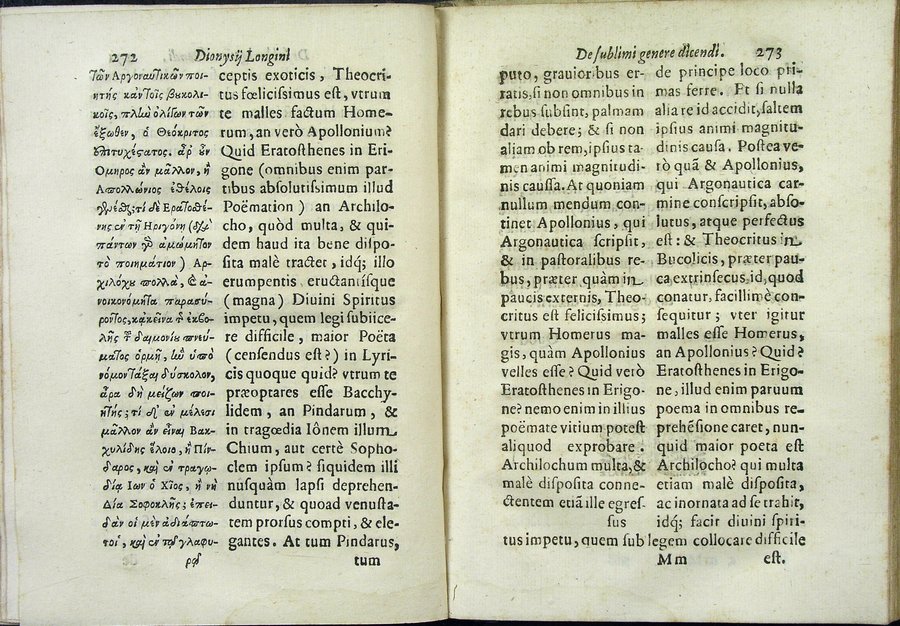 272 Dionysij Longini
τῶν Ἀργοναυτικῶν ποι-
ητής κἀν τοῖς βυκολι-
κοῖς, πλὴν ὀλίγων τῶν
ἔξωθεν, ὁ Θεόκριτος
ἐπιτυχέςατος. ἆρ οὖν
Ὅμηρος ἂν μᾶλλον, ἢ
Ἀπολλώνιος ἐθέλοις
γενέσθαι; τί δὲ Ἐρατοσθέ-
νης ἐν τῇ Ἠριγόνῃ (διὰ
πάντων γὰρ ἀμώμητον
τὸ ποιημάτιον) Ἀρ-
χιλόχου πολλὰ, καὶ ἀ-
νοικονόμητα παρασύ-
ροντος, κἀκεῖνα τῆς ἐκβο-
λῆς τοῦ δαιμονίου πνεύ-
ματος ὁρμῇ, ἣν ὑπὸ
νόμον τάξαι δύσκολον,
ἆρα δὴ μείζων ποι-
ητής; τί δ' ἐν μέλεσι
μᾶλλον ἂν εἶναι Βακ-
χυλίδης ἕλοιο, ἢ Πίν-
δαρος, καὶ ἐν τραγῳ-
δίᾳ Ἴων ὁ Χῖος, ἢ νὴ
Δία Σοφοκλῆς; ἐπει-
δὰν οἱ μὲν ἀδιάπτω-
τοι, καὶ ἐν τῷ γλαφυ-
ρῷ
ceptis exoticis, Theocri-
tus fœlicißimus eſt, vtrum
te malles factum Home-
rum, an verò Apollonium?
Quid Eratoſthenes in Eri-
gone (omnibus enim par-
tibus abſolutiſsimum illud
Poëmation) an Archilo-
cho, quòd multa, & qui-
dem haud ita bene diſpo-
ſita malè tractet, idq; illo
erumpentis eructantiſque
(magna) Diuini Spiritus
impetu, quem legi ſubiice-
re difficile, maior Poëta
(cenſendus eſt?) in Lyri-
cis quoque quid? vtrum te
præoptare eſſe Bacchy-
lidem, an Pindarum, &
in tragœdia Iônem illum
Chium, aut certè Sopho-
clem ipſum? ſiquidem illi
nuſquàm lapſi deprehen-
duntur, & quoad venuſta-
tem prorſus compti, & ele-
gantes. At tum Pindarus,
tum
De ſublimi genere dicendi. 273
puto, grauioribus er-
ratis, ſi non omnibus in
rebus ſubſint, palmam
dari debere; & ſi non
aliam ob rem, ipſius ta-
men animi magnitudi-
nis cauſſa. At quoniam
nullum mendum con-
tinet Apollonius, qui
Argonautica ſcripſit,
& in paſtoralibus re-
bus, præter quàm in
paucis externis, Theo-
critus eſt feliciſsimus;
vtrum Homerus ma-
gis, quàm Apollonius
velles eſſe? Quid verò
Eratoſthenes in Erigo-
ne? nemo enim in illius
poëmate vitium poteſt
aliquod exprobare.
Archilochum multa, &
malè diſpoſita conne-
ctentem etiã ille egreſ-
ſus
tus impetu, quem ſub
de principe loco pri-
mas ferre. Et ſi nulla
alia re id accidit, ſaltem
ipſius animi magnitu-
dinis cauſa. Poſtea ve-
rò quã & Apollonius,
qui Argonautica car-
mine conſcripſit, abſo-
lutus, atque perfectus
eſt: & Theocritus in
Bucolicis, præter pau-
ca extrinſecus, id, quod
conatur, facillimè con-
ſequitur; vter igitur
malles eſſe Homerus,
an Apollonius? Quid?
Eratoſthenes in Erigo-
ne, illud enim paruum
poema in omnibus re-
prehẽſione caret, nun-
quid maior poeta eſt
Archilocho? qui multa
etiam malè diſpoſita,
ac inornata ad ſe trahit,
idq; facit diuini ſpiri-
legem collocare difficile
Mm eſt.